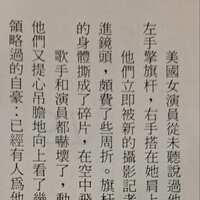 美國女演員從未聽說過他
左手擎旗杆，右手搭在她肩上
他們立即被新的攝影記者
進鏡頭，頗費了些周折。旗杆
的身體撕成了碎片，在空中飛
歌手和演員都嚇壞了，動
他們又提心吊膽地向上看了幾
領略過的自豪：已經有人爲他